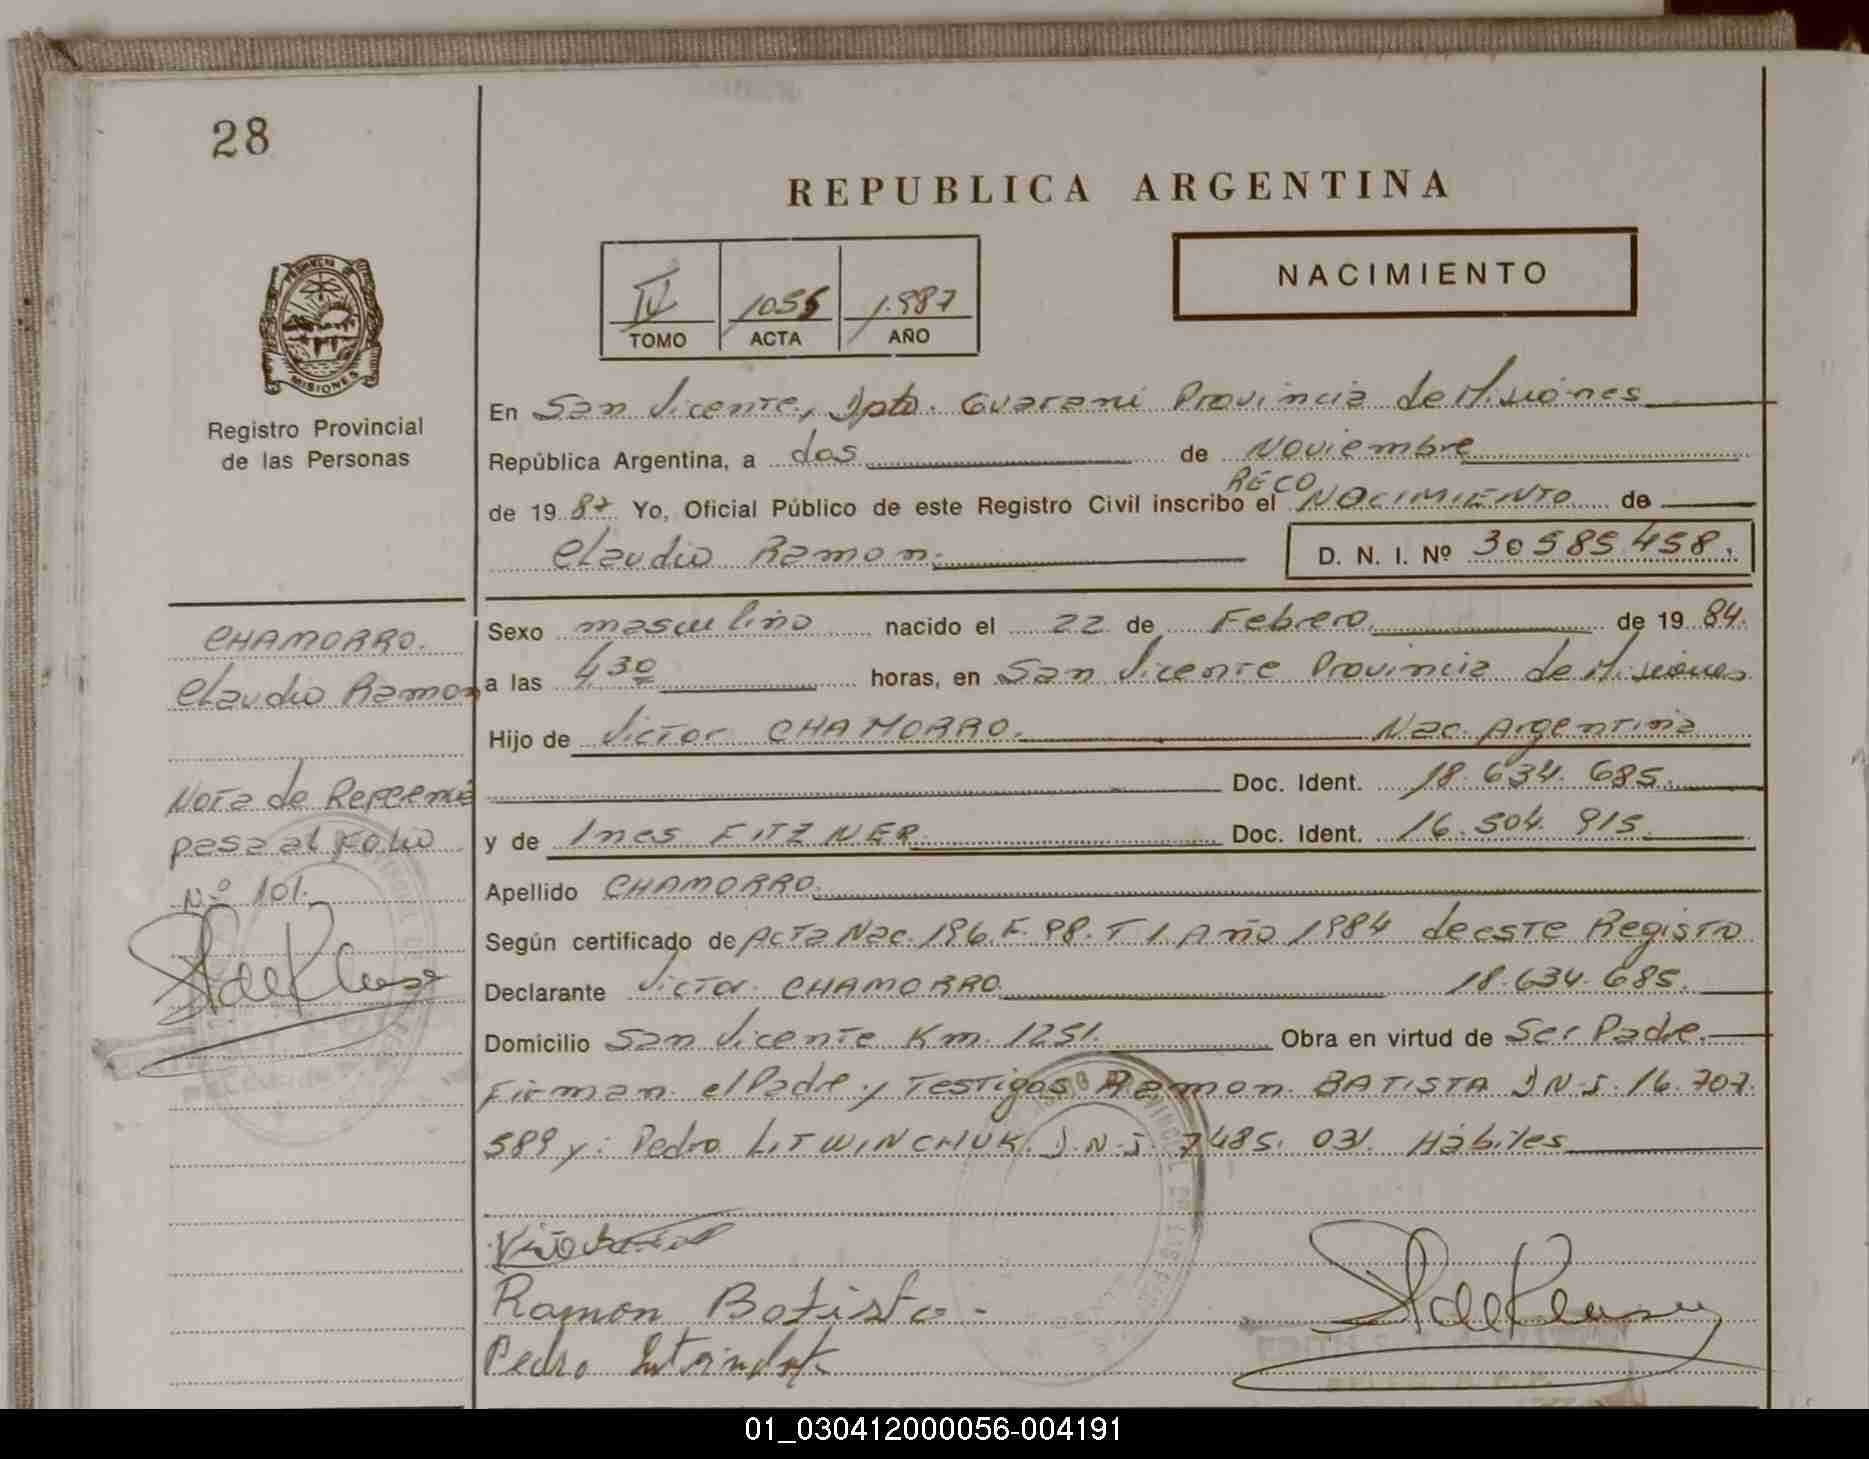 28
REPUBLICA ARGENTINA
NACIMIENTO
IV 1055 1.987
TOMO ACTA AÑO
PROVINCIA DE
MISIONES
Registro Provincial
de las Personas
En San Vicente, Dpto. Guarani Provincia de Misiones
República Argentina, a dos de Noviembre
RECO
de 1987 Yo, Oficial Público de este Registro Civil inscribo el NOCIMIENTO de
Claudio Ramon. D. N. I. Nº 30585.458.
CHAMORRO.
Claudio Ramon
Nota de Referencia
pasa al Folio
Nº 101.
Sexo masculino nacido el 22 de Febrero de 1984.
a las 4 30 horas, en San Vicente Provincia de Misiones
Hijo de Victor CHAMORRO. Nac. Argentina
Doc. Ident. 18.634.685.
y de Ines FITZNER Doc. Ident. 16.504.915.
Apellido CHAMORRO.
Según certificado de Acta Nac. 196. F. 98. T 1. Año 1984 de este Registro
Declarante Victor CHAMORRO 18.634.685.
Domicilio San Vicente Km. 1251. Obra en virtud de Ser Padre.
Firman el Padre y Testigos Ramon BATISTA D.N.I. 16.707.
589 y: Pedro LITWINCHUK. D.N.I. 7485.031. Hábiles
Ramon Batista -
Pedro
01_030412000056-004191